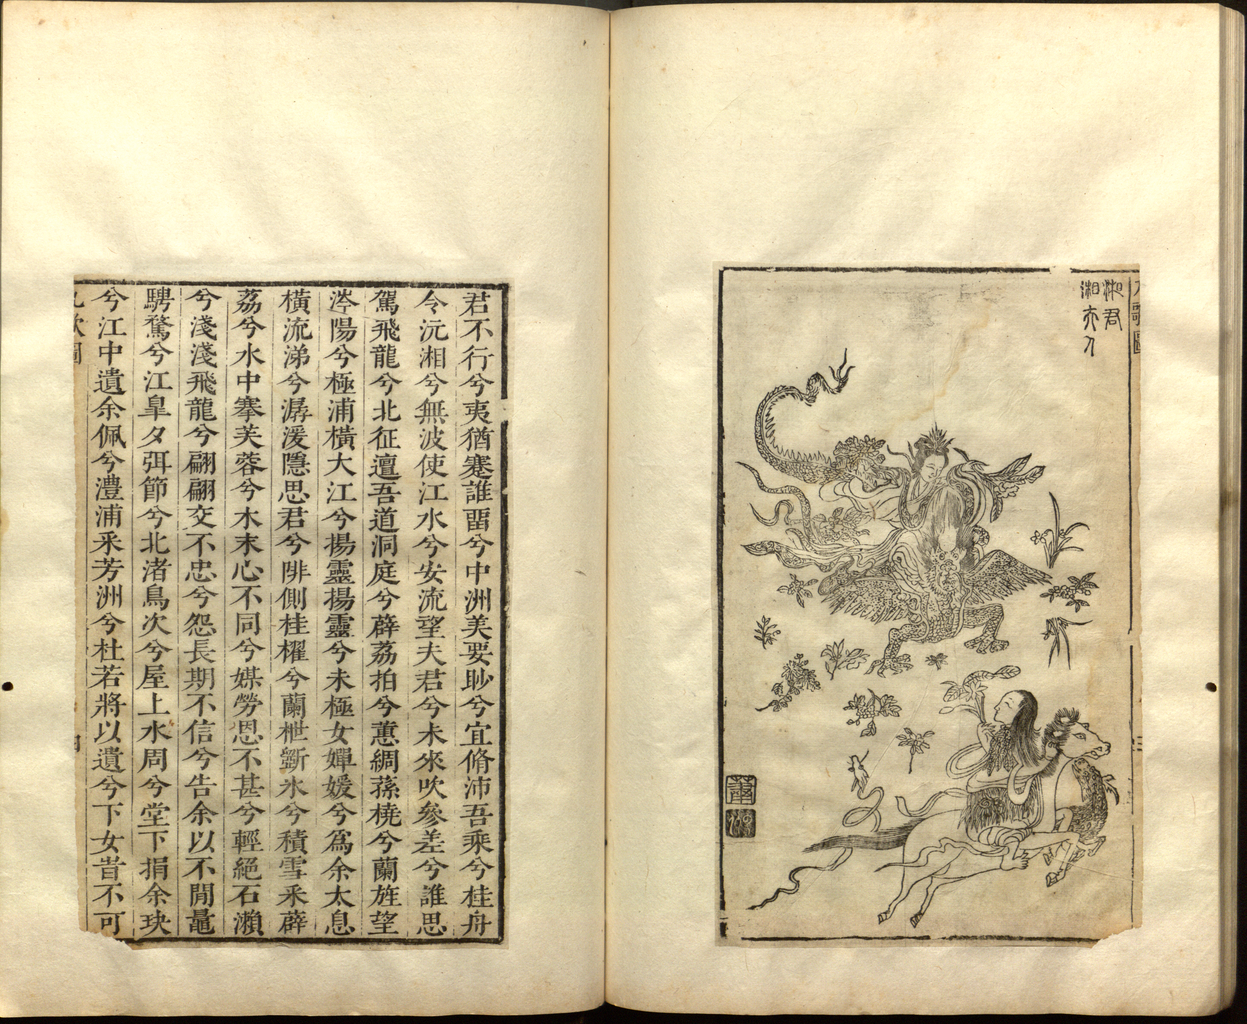 九歌圖
湘君
湘夫人
君不行兮夷猶蹇誰畱兮中洲美要眇兮宜脩沛吾乘兮桂舟
令沅湘兮無波使江水兮安流望夫君兮未來吹參差兮誰思
駕飛龍兮北征邅吾道洞庭兮薜荔拍兮蕙綢蓀橈兮蘭旌望
涔陽兮極浦橫大江兮揚靈揚靈兮未極女嬋媛兮爲余太息
橫流涕兮潺湲隱思君兮陫側桂櫂兮蘭枻斲氷兮積雪采薜
荔兮水中搴芙蓉兮木末心不同兮媒勞恩不甚兮輕絕石瀨
兮淺淺飛龍兮翩翩交不忠兮怨長期不信兮告余以不閒鼂
騁騖兮江皐夕弭節兮北渚鳥次兮屋上水周兮堂下捐余玦
兮江中遺余佩兮澧浦采芳洲兮杜若將以遺兮下女旹不可
九歌圖